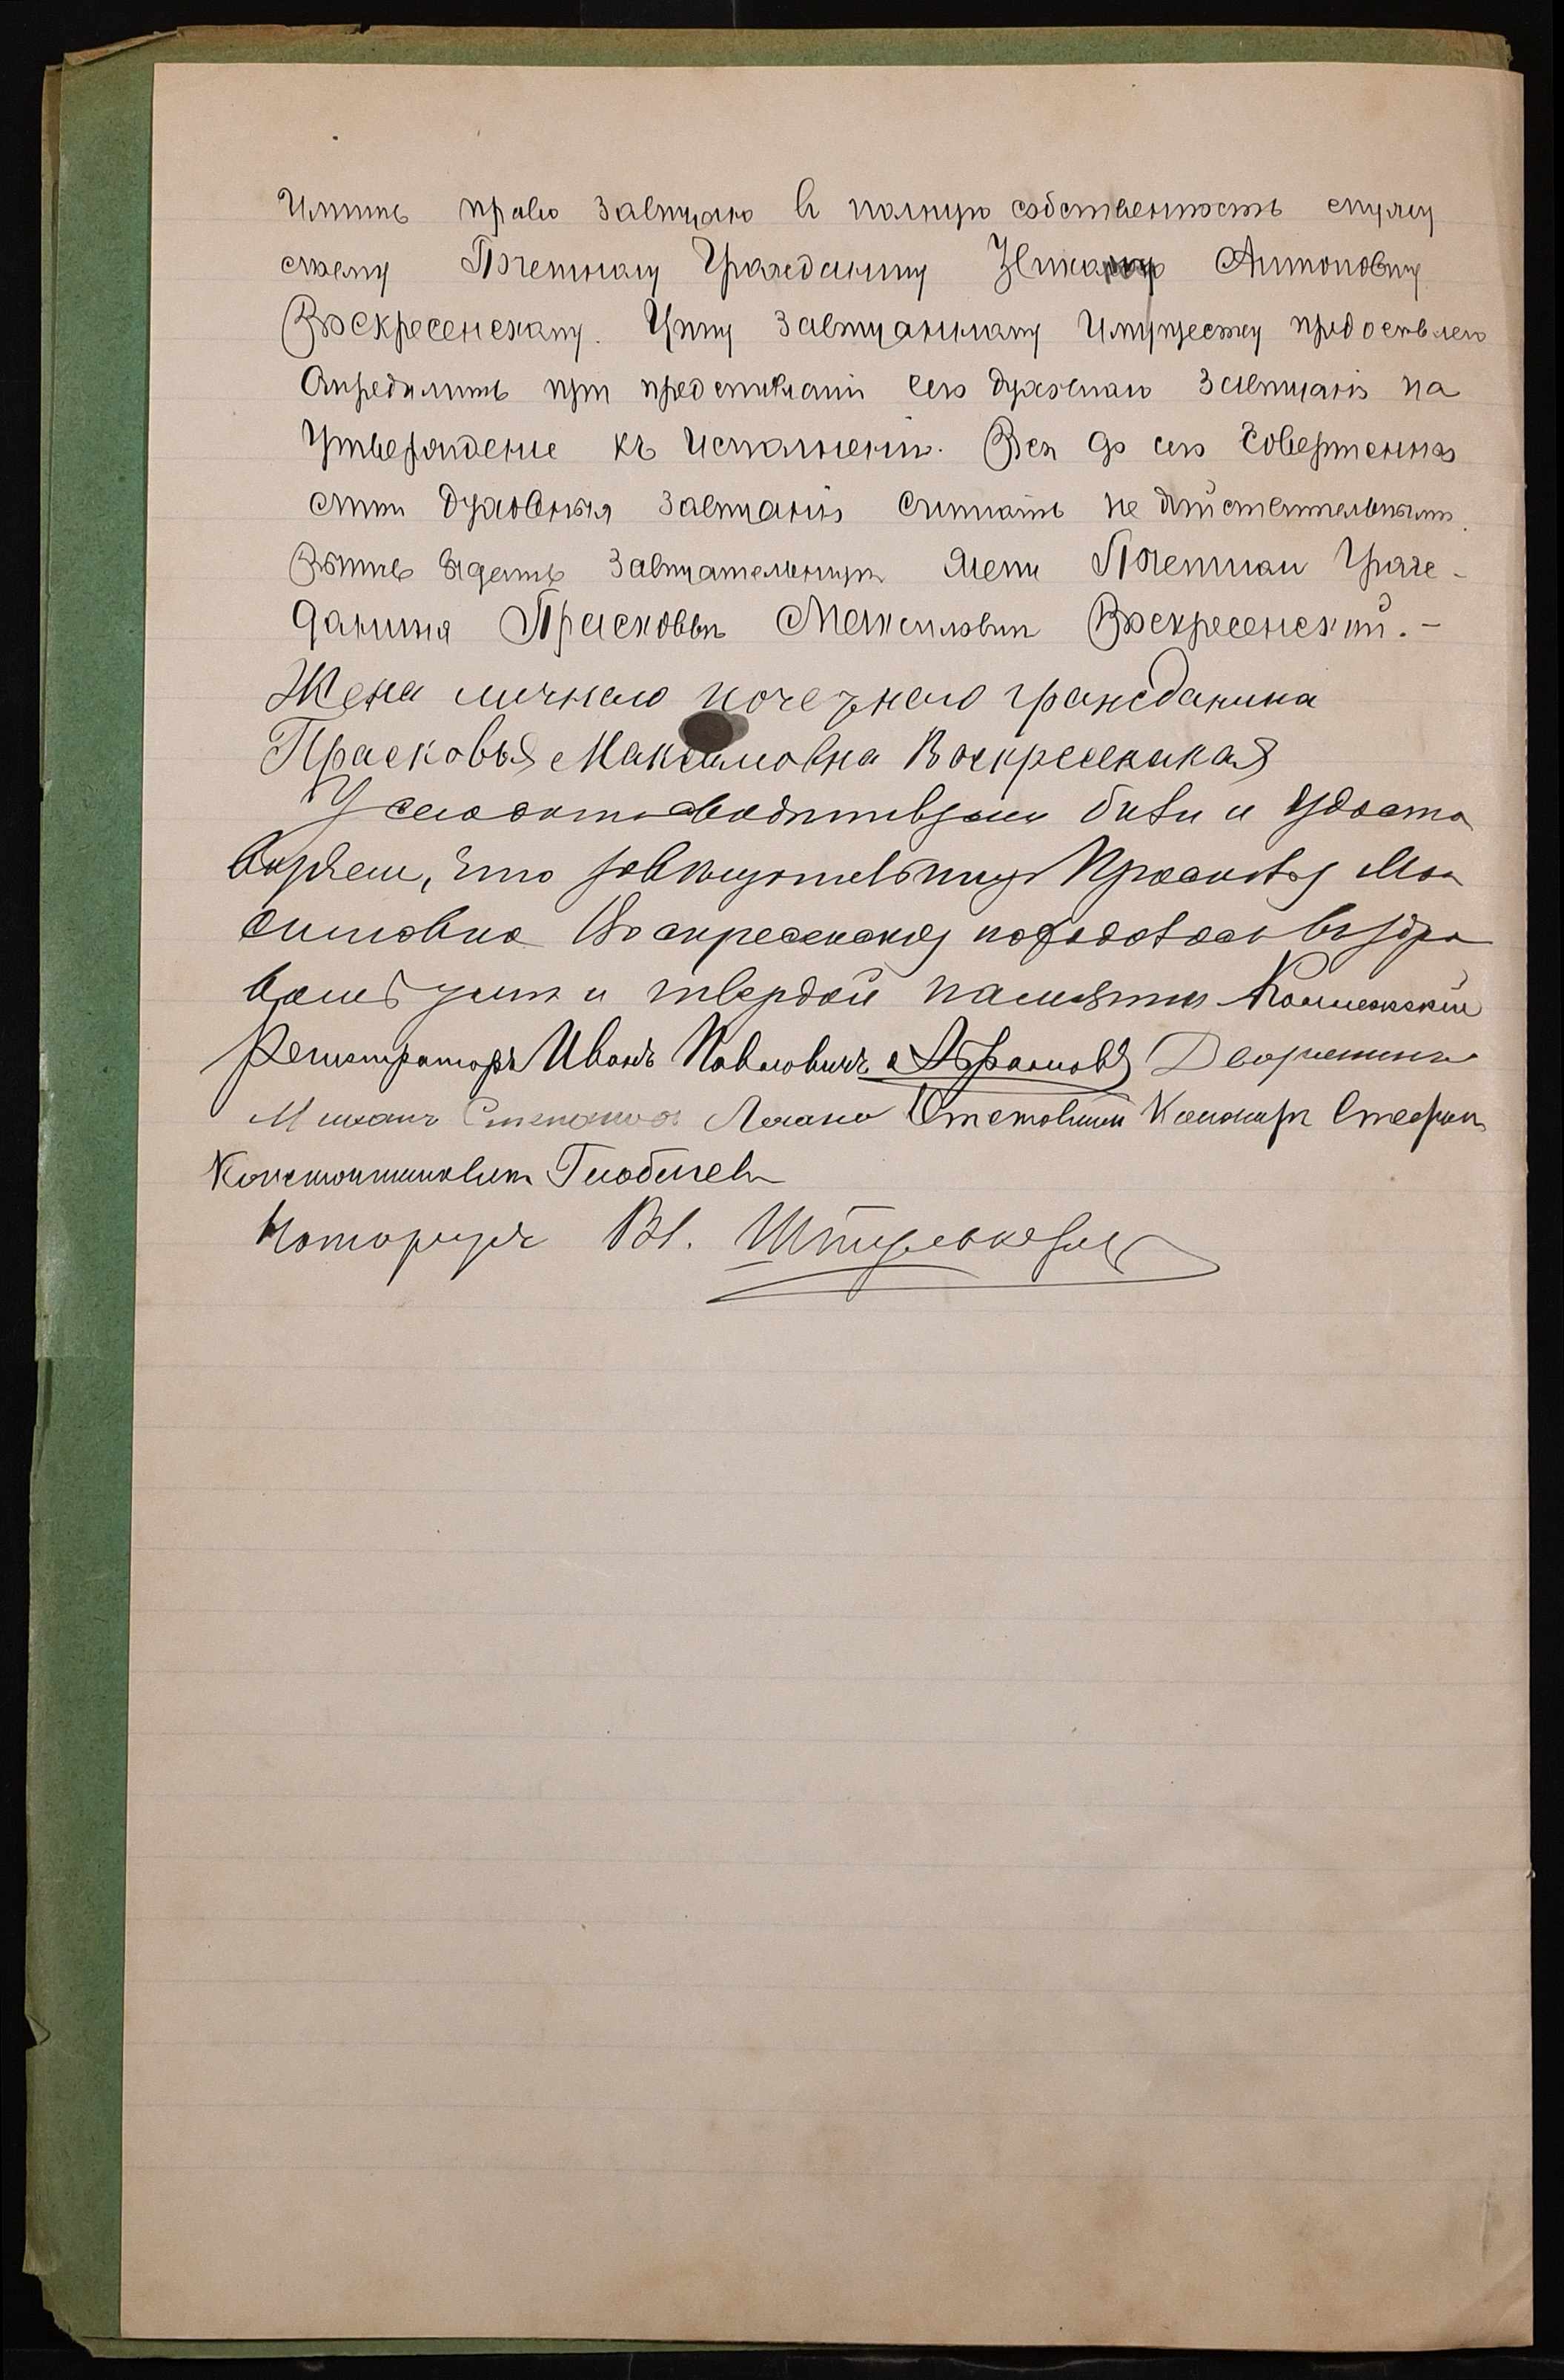 Имѣть право завѣщаю въ полную собственность супругу
своему Почетному Гражданину Никанору Антоновичу
Воскресенскому. Цѣну завѣщанному имуществу предоставляю
Опредѣлить при представленіи сего духовнаго завѣщанія на
Утвержденіе къ исполненію. Всѣ до сего совершенныя
духовныя завѣщанія считать не дѣйствительными.
завѣщательницы жены Почетнаго Граж-
данина Прасковьи Максимовны Воскресенской. -
Жена личнаго почетнаго гражданина
Прасковья Максимовна Воскресенская
У сего были и удосто
веряем, что завѣщательница Прасковья Мак
симовна Воскресенская находилась въ здра
вомъ умѣ и твердой памяти Коллежскій
Регистраторъ Иванъ Павловичъ Абрамовъ Дворянинъ
Михаилъ Степановъ Отставной Стефанъ
Константиновичъ
Нотаріусъ Вл.